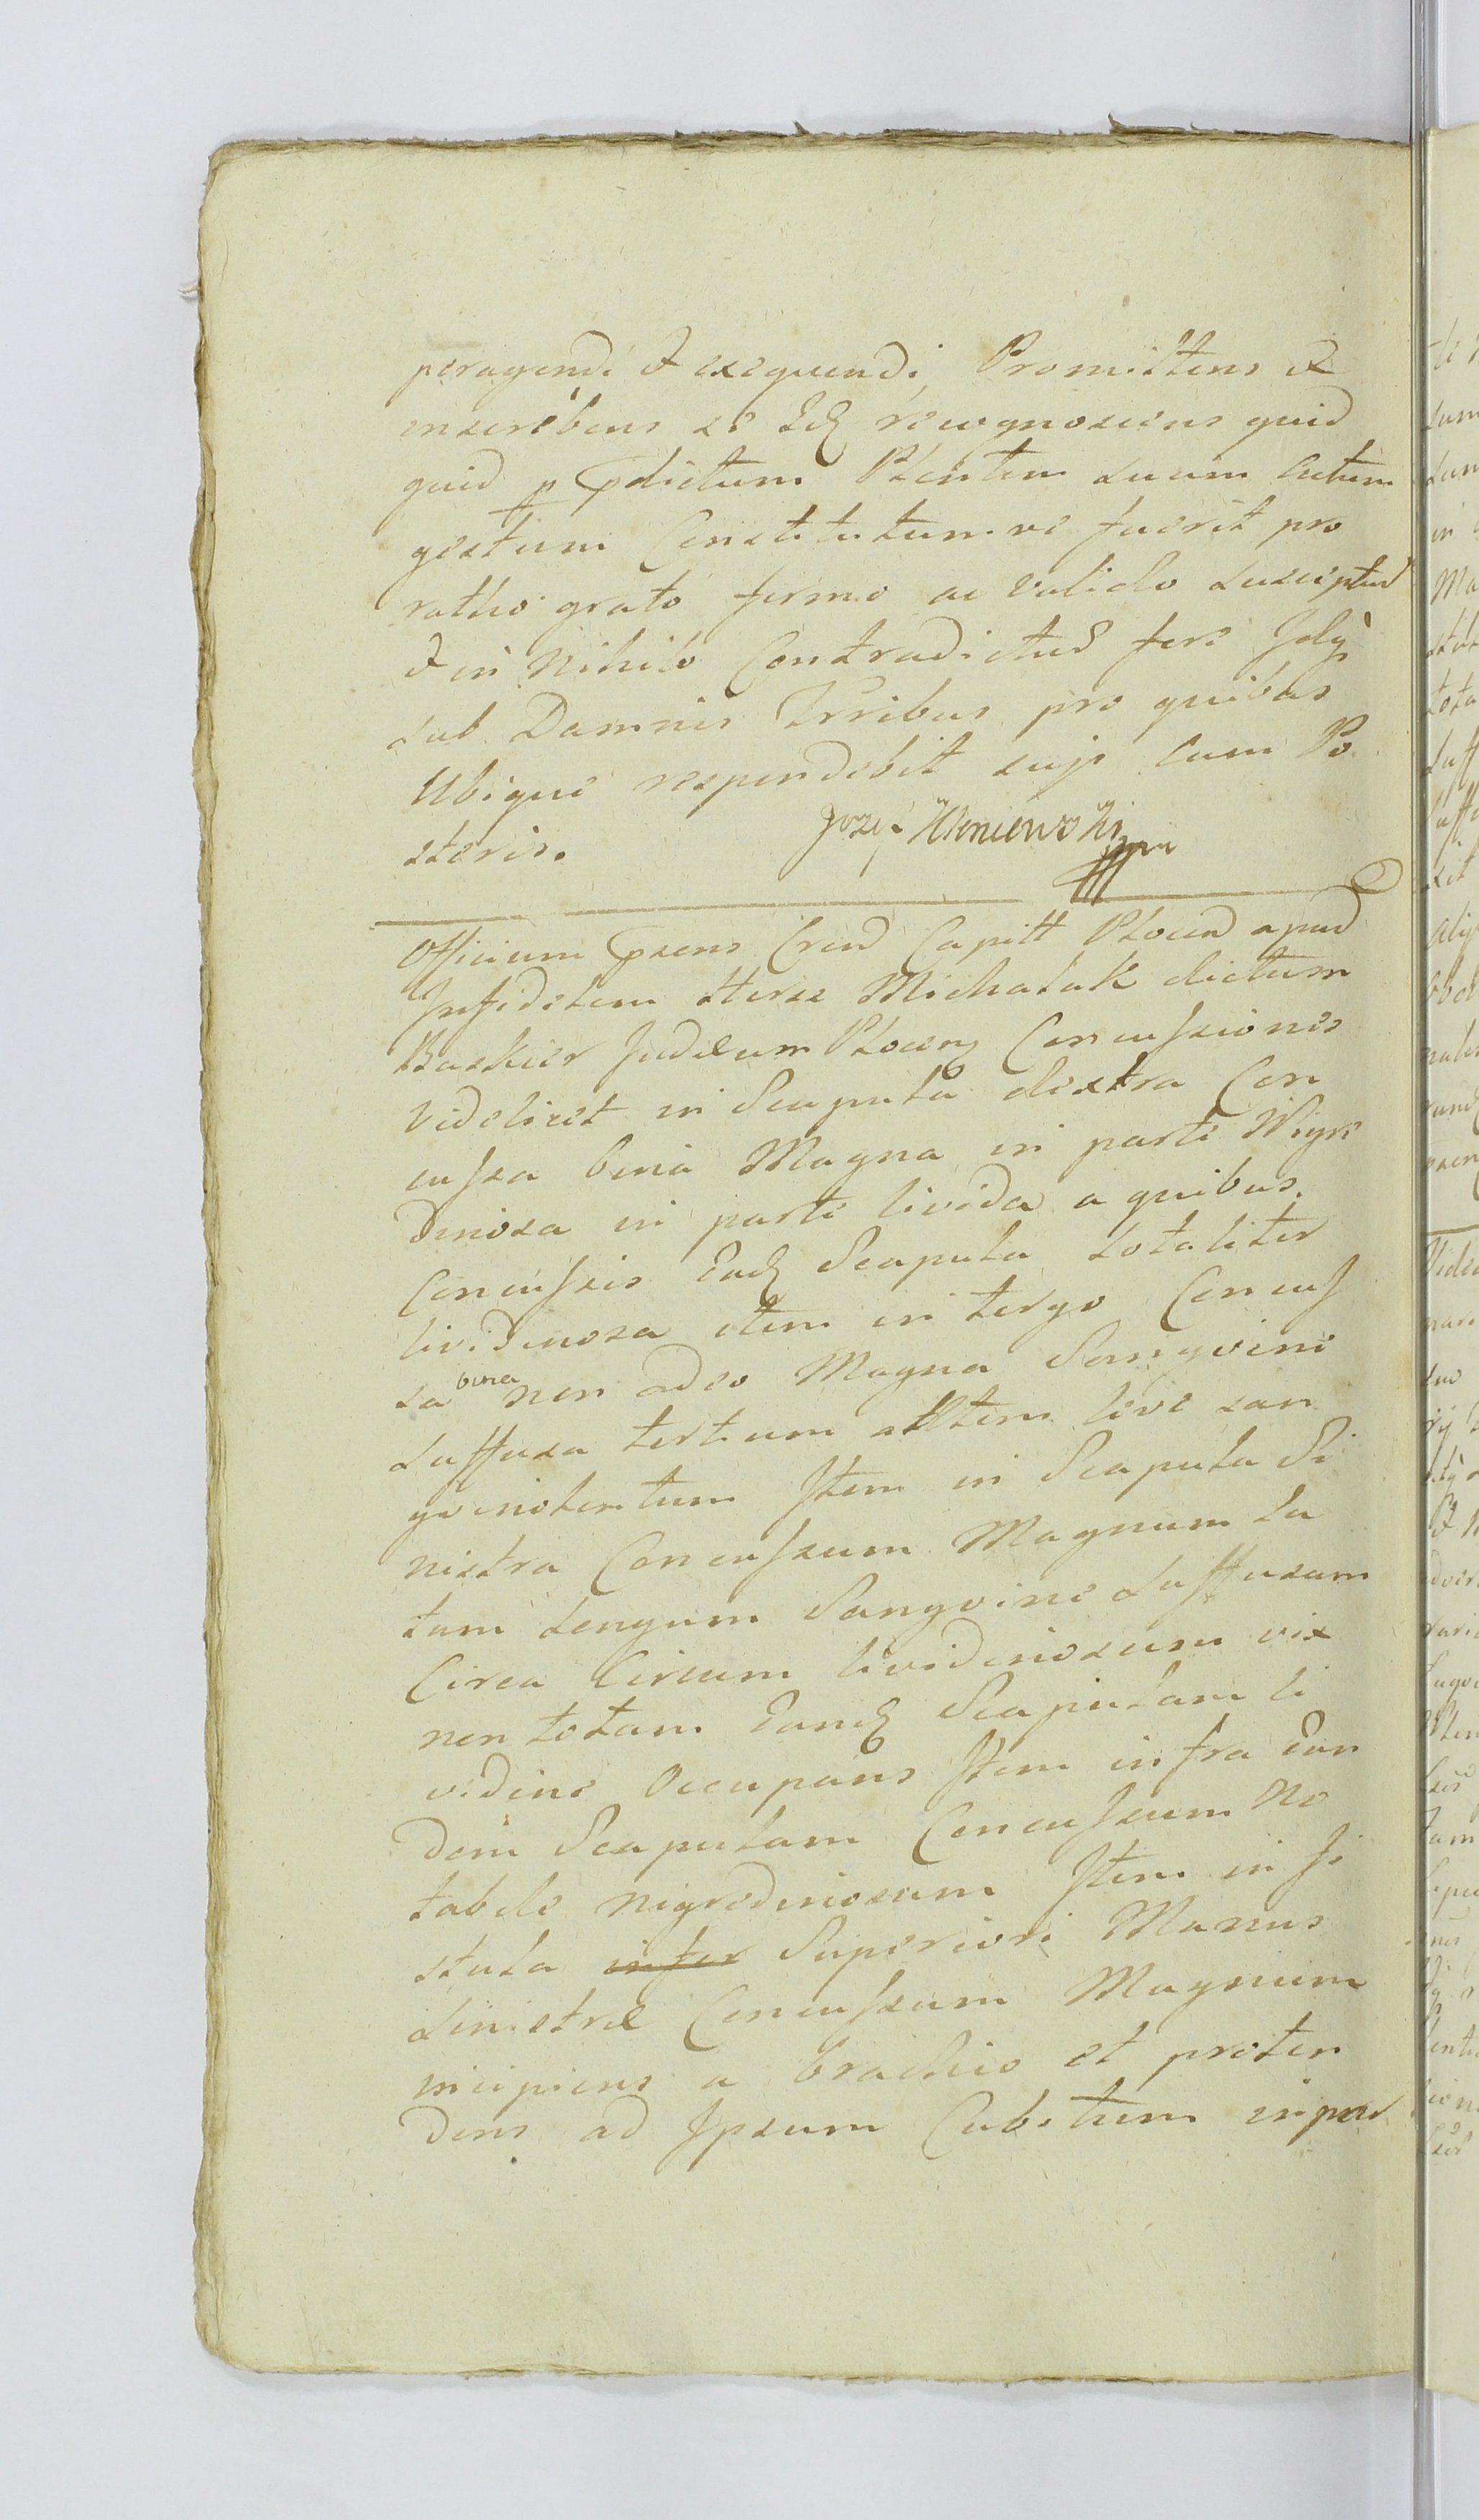 peragendi & exequendi, Promittens &
inscribens se Ideq recognoscens quid
quid p pdictum Plentem suum actum
gestum Constitutumve fuerit pro
ratho grato firmo ac valido susciptud
& in Nihilo Contradictud fere Jdq
sub Damnis Trribus pro quibus
Ubique respondebit suis cum Po
steris.
Officium psens Crend Capitt Plocen apud
Jnfidelem Hersz Michalak dictum
Baskier Judæum Plocen Concussiones
Videlicet in Scapula dextra Con
cussa bina Magna in parte Nigre
dinosa in parte livida a quibus
Concussis Eadq Scapula totaliter
lividinosa item in tergo Concus
sa bina non adeo Magna Sangvine
suffusa tertium autem leve san
gvinolentum Jtem in Scapula Si
nistra Concussum Magnum La
tum Longum Sangvine suffusum
Circa Circum lividinosum vix
non totam Eandq Scapulam li
vidine Occupans Jtem infra Ean
dem Scapulam Concussum No
tabile nigredinosum Jtem in fi
stula infer Superiori Manus
sinistræ Concussum Magnum
incipiens a brachio et proten
dens ad Jpsum Cubitum in